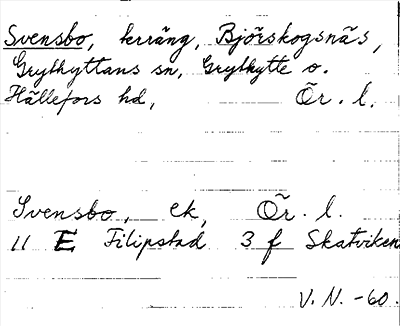 Svensbo, krräng, Björskogsnäs,
Grythyttans sn, Grythytte o.
Hällefors hd, Ör. l.
Svensbo, ek, Ör. l.
11 E Filipstad 3 f Skatviken
V. N. -60.